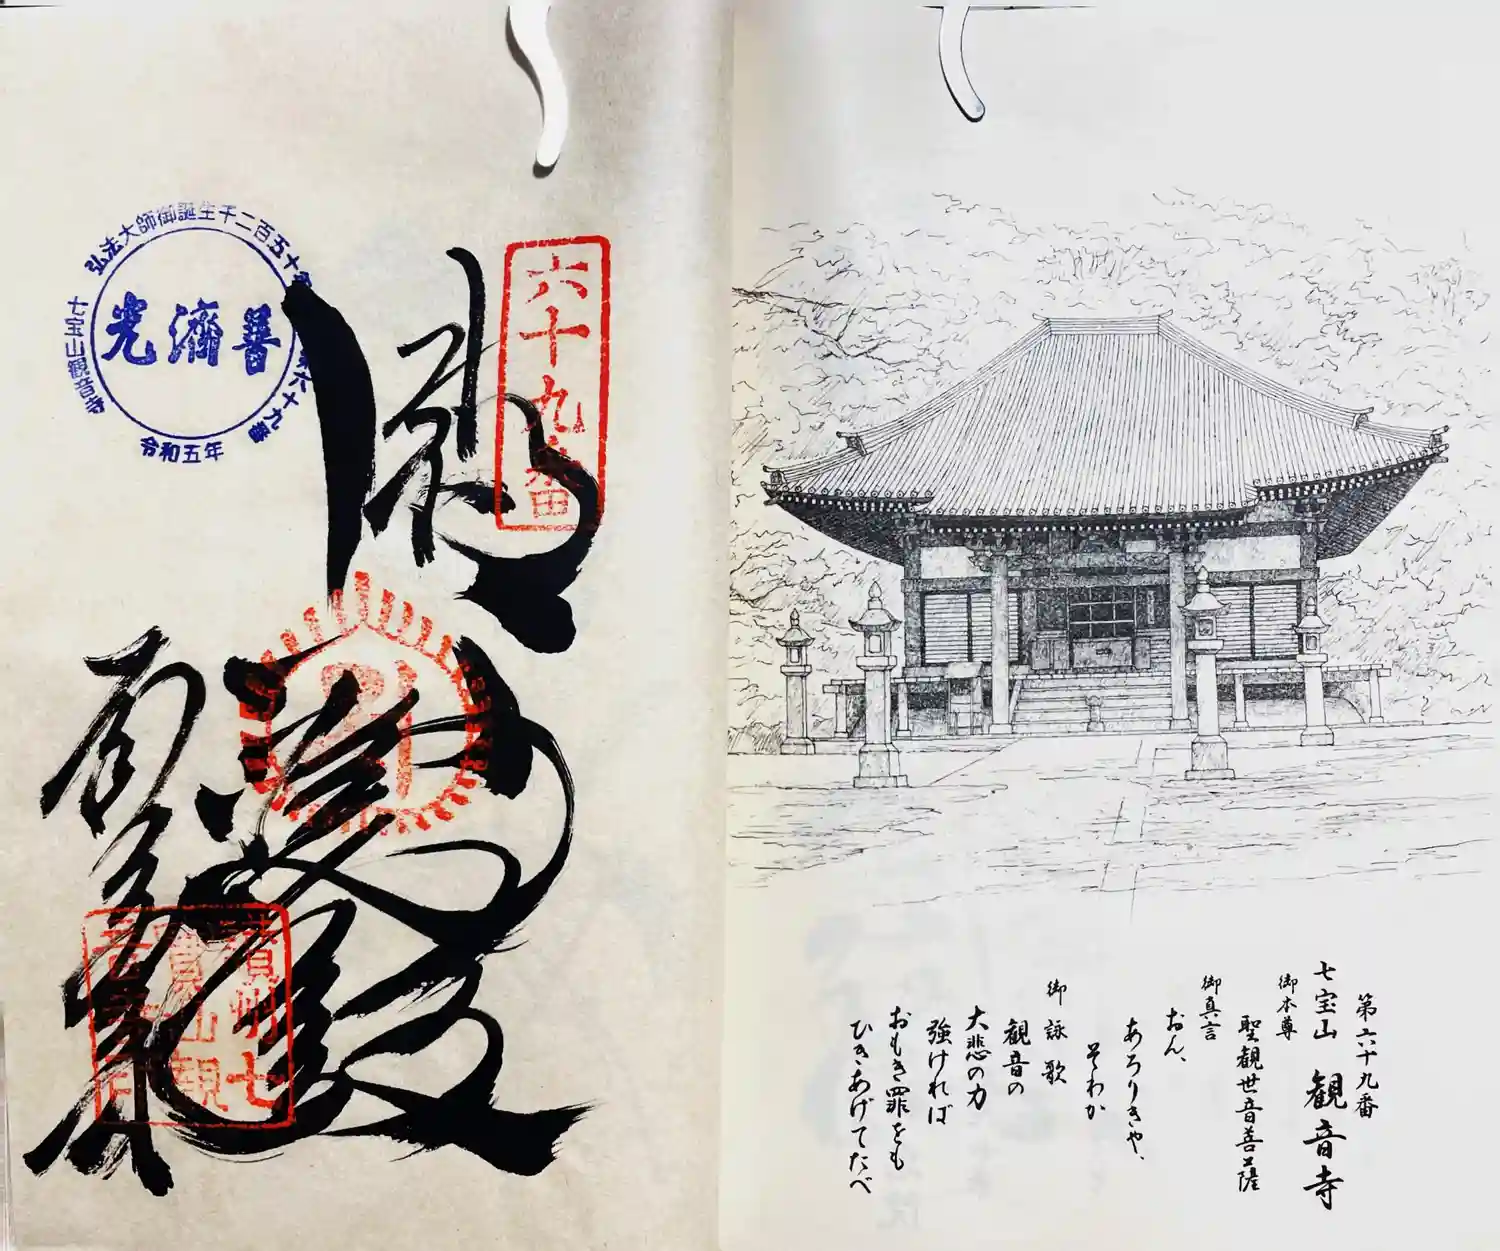 第六十九番
七宝山 観音寺
御本尊
聖観世音菩薩
御真言
おん、
あろりきや、
そわか
御詠歌
観音の
大悲の力
強ければ
おもき罪をも
ひきあげてたべ
六十九番
弘法大師御誕生千二百五十年
第六十九番
七宝山観音寺
善済光
令和五年
讃州七
宝山観
音寺印